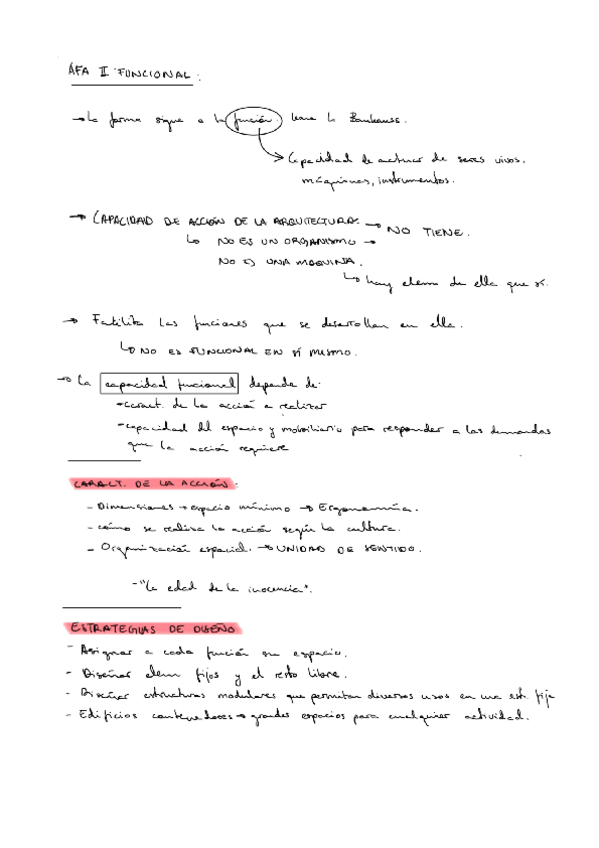 AFA II FUNCIONAL:
→ La forma sigue a la función. lema la Bauhauss.
↳ Capacidad de actuar de seres vivos.
máquinas, instrumentos.
→ CAPACIDAD DE ACCIÓN DE LA ARQUITECTURA: → NO TIENE.
↳ NO ES UN ORGANISMO →
NO ES UNA MAQUINA.
↳ hay elem de ella que sí.
→ Facilita las funciones que se desarrollan en ella.
↳ NO ES FUNCIONAL EN SÍ MISMO.
→ La capacidad funcional depende de:
- caract. de la acción a realizar
- capacidad del espacio y mobiliario para responder a las demandas
que la acción requiere
CARACT. DE LA ACCIÓN:
- Dimensiones → espacio mínimo → Ergonomía.
- cómo se realiza la acción según la cultura.
- Organización espacial. → UNIDAD DE SENTIDO.
- "la edad de la inocencia".
ESTRATEGIAS DE DISEÑO
- Asignar a cada función su espacio.
- Diseñar elem fijos y el resto libre.
- Diseñar estructuras modulares que permitan diversos usos en una est. fija
- Edificios contenedores → grandes espacios para cualquier actividad.